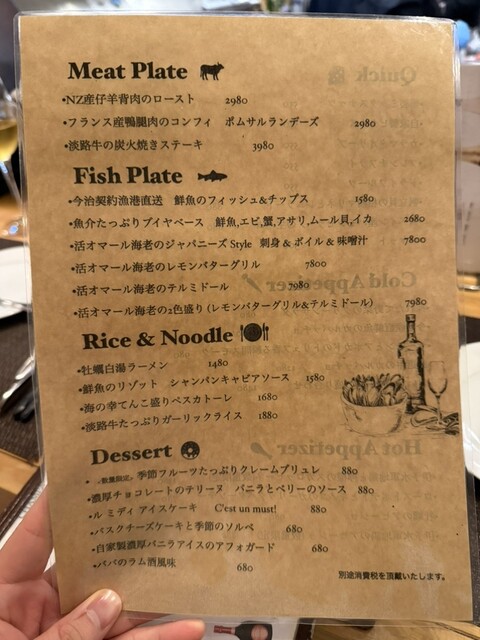 Meat Plate
•NZ産仔羊背肉のロースト 2980
•フランス産鴨腿肉のコンフィ ポムサルランデーズ 2980
•淡路牛の炭火焼きステーキ 3980
Fish Plate
•今治契約漁港直送 鮮魚のフィッシュ&チップス 1580
•魚介たっぷりブイヤベース 鮮魚,エビ,蟹,アサリ,ムール貝,イカ 2680
•活オマール海老のジャパニーズ Style 刺身 & ボイル & 味噌汁 7800
•活オマール海老のレモンバターグリル 7800
•活オマール海老のテルミドール 7980
•活オマール海老の2色盛り (レモンバターグリル&テルミドール) 7980
Rice & Noodle
•牡蠣白湯ラーメン 1480
•鮮魚のリゾット シャンパンキャビアソース 1580
•海の幸てんこ盛りペスカトーレ 1680
•淡路牛たっぷりガーリックライス 1880
Dessert
•、数量限定。季節フルーツたっぷりクレームブリュレ 880
•濃厚チョコレートのテリーヌ バニラとベリーのソース 880
•ル ミディ アイスケーキ C'est un must! 880
•バスクチーズケーキと季節のソルベ 680
•自家製濃厚バニラアイスのアフォガード 680
•ババのラム酒風味 680
別途消費税を頂戴いたします。
Quick
Cold Appetizer
Hot Appetizer